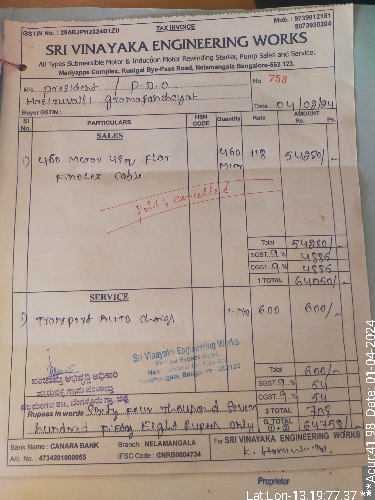 GSTIN No. : 29AEJPH2324D1ZU TAX INVOICE Mob. : 9739012181
8073930204
SRI VINAYAKA ENGINEERING WORKS
All Types Submersible Motor & Induction Motor Rewinding Starter, Pump Sales and Service.
Mariyappa Complex, Kunigal Bye-Pass Road, Nelamangala Bangalore-562 123.
M/s President / P.D.O No. 758
gramapanchayat
Buyer GSTIN : Date : 04/02/24
Sl No. PARTICULARS HSN CODE Quantity Rate AMOUNT Rs. Ps.
SALES
1) 460 Meter 4sq Flat 460 118 54280/-
Finolex Cable Mtr
Paid & Cancelled
Total 54280/-
SGST 9 % 4885
CGST 9 % 4885
1 TOTAL 64050/-
SERVICE
1) Transport Auto Charge 600 600/-
Sri Vinayaka Engineering Works
Kunigal Bypass Road,
Nelamangala, Bangalore - 562123
Total 600/-
ಪಂಚಾಯ್ತಿ ಅಭಿವೃದ್ಧಿ ಅಧಿಕಾರಿ SGST 9 % 54
ಗ್ರಾಮ ಪಂಚಾಯ್ತಿ CGST 9 % 54
ನೆಲಮಂಗಲ ತಾ., ಬೆಂಗಳೂರು ಗ್ರಾ. ಜಿಲ್ಲೆ 2 TOTAL 708
Rupees in words Sixty four Thousand Seven
hundred fifty Eight Rupees only G. TOTAL (1+2) 64758/-
Bank Name : CANARA BANK Branch : NELAMANGALA For SRI VINAYAKA ENGINEERING WORKS
A/c No. 4734201000065 IFSC Code : CNRB0004734
Proprietor
Lat:Lon-13.19:77.37
Acur:41.98 Date: 01-04-2024